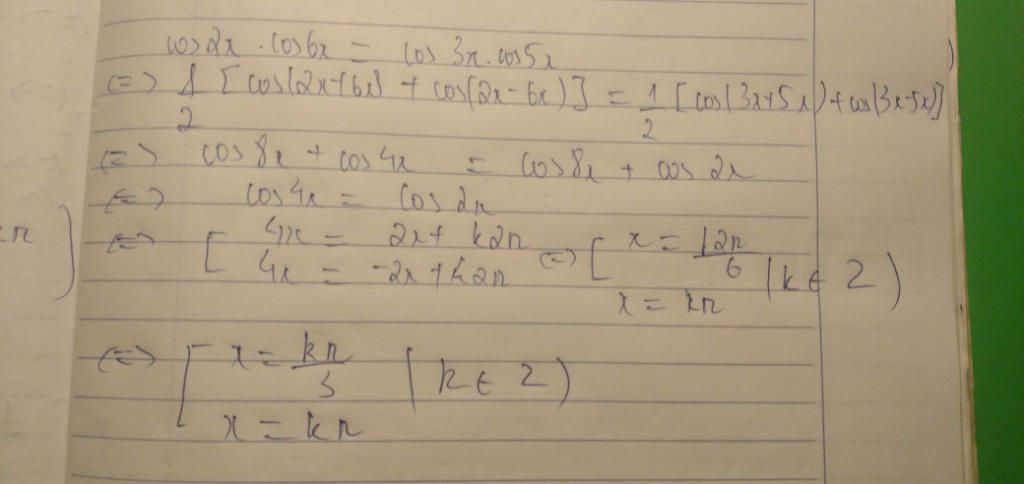 cos2x . cos6x = cos 3x. cos5x
<=> 1/2 [cos(2x+6x) + cos(2x-6x)] = 1/2 [cos(3x+5x)+cos(3x-5x)]
<=> cos 8x + cos 4x = cos 8x + cos 2x
<=> cos4x = cos 2x
<=> [ 4x = 2x + k2π <=> [ x = k2π/6
4x = -2x + k2π x = kπ (k ∈ Z)
<=> [ x = kπ/3 (k ∈ Z)
x = kπ